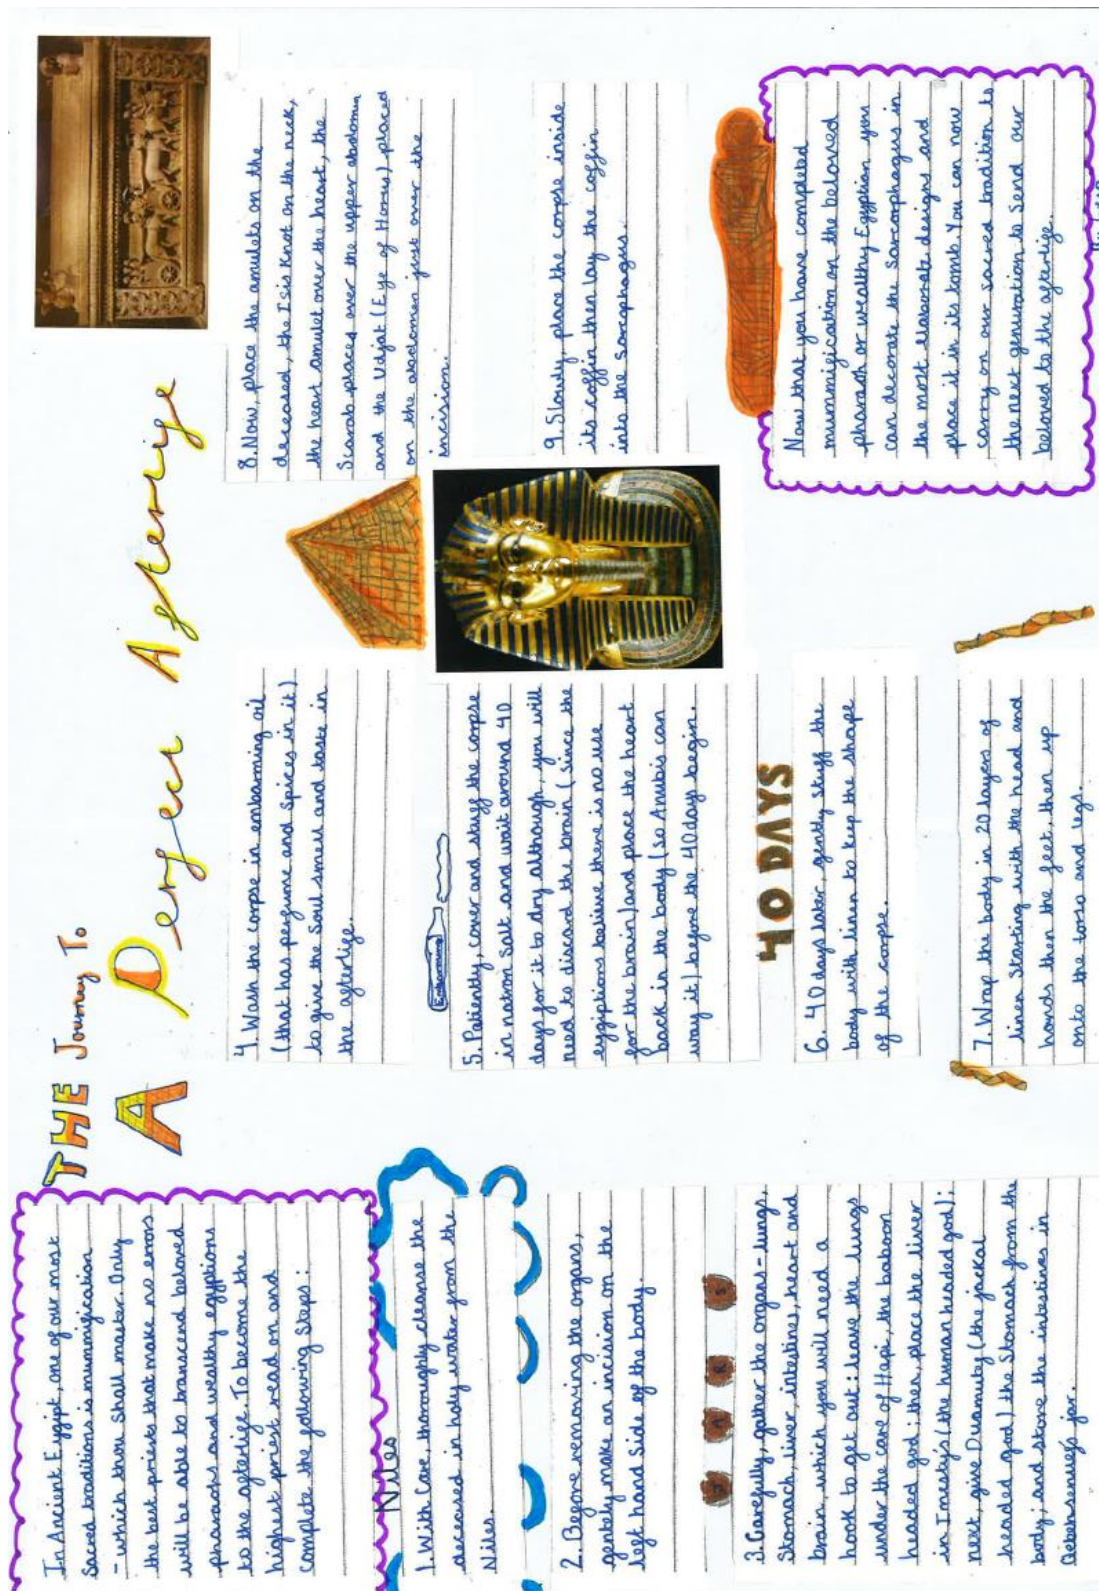 THE Journey To
A Perfect Afterlife
In Ancient Eygipt, one of our most
Sacred traditions is mummification
- which thou shall master. Only
the best priests that make no errors
will be able to transcend beloved
pharaohs and wealthy egyptions
to the afterlife. To become the
highest priest read on and
complete the following steps:
Niles
1. With Care, thoroughly cleanse the
deceased in holy water from the
Niles.
2. Before removing the organs,
gentely make an incision on the
left hand side of the body.
J A R S
3. Carefully, gather the organs - lungs,
Stomach, liver, intestines, heart and
brain, which you will need a
hook to get out: leave the lungs
under the care of Hapi, the baboon
headed god; then, place the liver
in Imesty's (the human headed god);
next, give Duamutef (the jackal
headed god) the Stomach from the
body; and store the intestines in
Qebehsenuef's jar.
4. Wash the corpse in embarming oil
(that has perfume and spices in it)
to give the Soul smell and taste in
the afterlife.
5. Patiently, cover and stuff the corpse
in natron Salt and wait around 40
days for it to dry although, you will
need to discard the brain (since the
eygiptions believe there is no use
for the brain) and place the heart
back in the body (so Anubis can
way it) before the 40 days begin.
40 DAYS
6. 40 days later, gently stuff the
body with linen to keep the shape
of the corpse.
7. Wrap the body in 20 layers of
linen Starting with the head and
hands then the feet, then up
onto the torso and legs.
8. Now, place the amulets on the
deceased, the Isis Knot on the neck,
the heart amulet over the heart, the
Scarab places over the upper abdomen
and the Udjat (Eye of Horus) placed
on the abdomen just over the
incision.
9. Slowly, place the corpse inside
its coffin then lay the coffin
into the sarcophagus.
Now that you have completed
mummification on the beloved
pharaoh or wealthy Egyptian you
can decorate the Sarcorphagus in
the most elaborate designs and
place it in its tomb. You can now
carry on our sacred tradition to
the next generation to Send our
beloved to the afterlife.